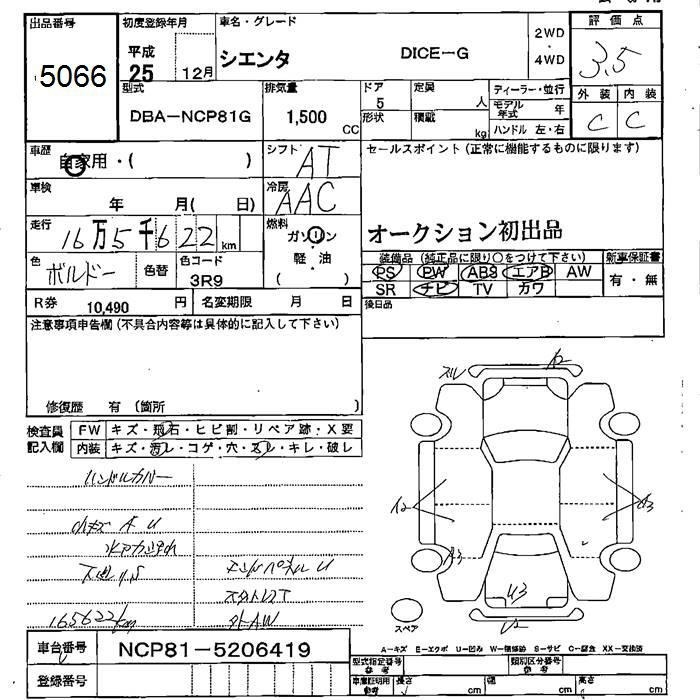 出品番号
5066
初度登録年月
平成
25 12月
車名・グレード
シエンタ DICE-G
2WD
・
4WD
評価点
3.5
外装 内装
C C
型式
DBA-NCP81G
排気量
1,500
CC
ドア
5
形状
定員
人
積載
kg
ディーラー・並行
モデル年式 年
ハンドル 左・右
車歴
自家用・( )
シフト
AT
車検
年 月( 日)
冷房
AAC
走行
16万5千622 km
燃料
ガソリン
軽・油
( )
色
ボルドー
色替
色コード
3R9
R券 10,490 円
名変期限 月 日
セールスポイント(正常に機能するものに限ります)
オークション初出品
装備品(純正品に限り○をつけて下さい)
PS PW ABS エアB AW
SR ナビ TV カワ
新車保証書
有・無
後日品
注意事項申告欄(不具合内容等は具体的に記入して下さい)
修復歴 有 (箇所
検査員
記入欄
FW キズ・飛石・ヒビ割・リペア跡・X要
内装 キズ・汚レ・コゲ・穴・スレ・キレ・破レ
ハンドルカバー
小キズ A U
165622km
エンドパネル U
外AW
スレ
A2
A2
A3
A3
U3
U2
スペア
A-キズ E-エクボ U-凹み W-補修跡 S-サビ C-腐食 XX-交換済
車台番号 NCP81-5206419
登録番号
型式指定番号
参考
類別区分番号
参考
車庫証明用
参考
長さ cm
幅 cm
高さ cm